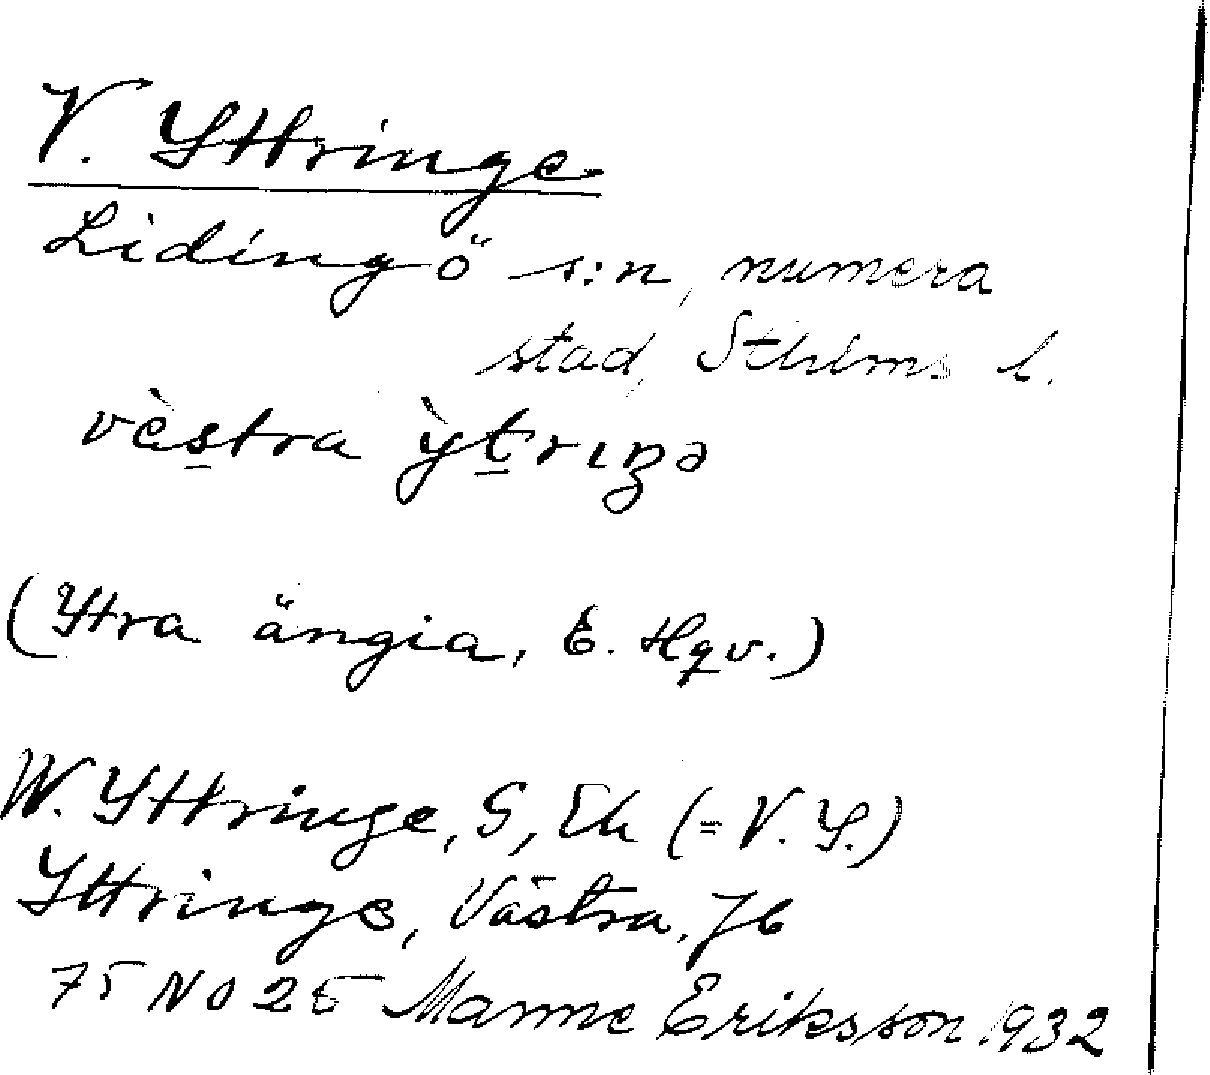 V. Yttringe
Lidingö s:n, numera
stad, Sthlms l.
vèstra ỳtrıŋə
(Ytra ängia, E. Hqv.)
W. Yttringe, G, Ek (= V. Y.)
Yttringe, Västra, Jb
75 NO 25 Manne Eriksson 1932